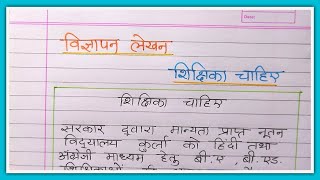 विज्ञापन लेखन
शिक्षिका चाहिए
शिक्षिका चाहिए
सरकार द्वारा मान्यता प्राप्त नूतन
विद्यालय कुर्ला को हिंदी तथा
अंग्रेजी माध्यम हेतु बी.ए , बी.एड.